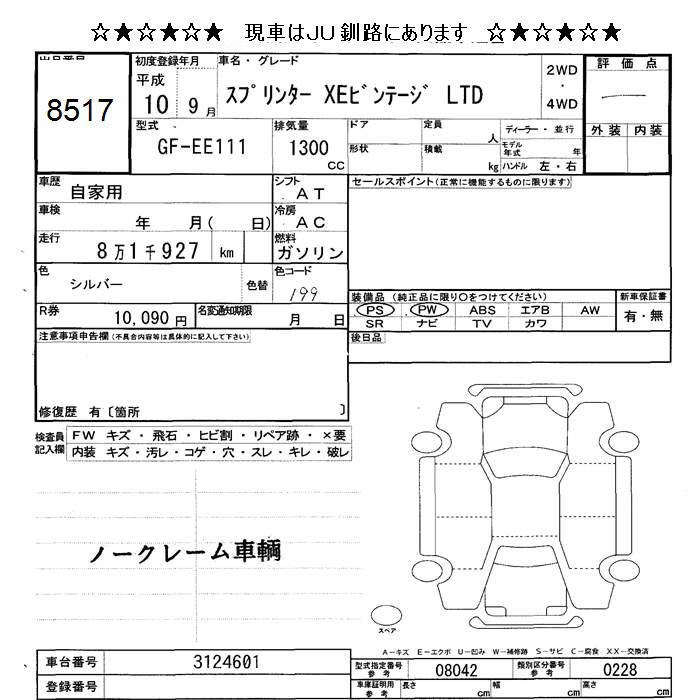 ☆★☆★☆★ 現車はJU釧路にあります ☆★☆★☆★
8517
初度登録年月
平成
10 9月
車名・グレード
スプリンター XEビンテージ LTD
2WD
・
4WD
評価点
外装 内装
型式
GF-EE111
排気量
1300
CC
ドア
形状
定員
人
積載
kg
ディーラー・並行
モデル年式 年
ハンドル 左・右
車歴
自家用
シフト
AT
車検
年 月( 日)
冷房
AC
走行
8万1千927 km
燃料
ガソリン
色
シルバー
色替
色コード
199
R券
10,090円
名変通知期限
月 日
セールスポイント(正常に機能するものに限ります)
装備品 (純正品に限り○をつけてください)
PS PW ABS エアB AW
SR ナビ TV カワ
新車保証書
有・無
後日品
注意事項申告欄(不具合内容等は具体的に記入して下さい)
修復歴 有〔箇所 〕
検査員記入欄
FW キズ・飛石・ヒビ割・リペア跡・×要
内装 キズ・汚レ・コゲ・穴・スレ・キレ・破レ
ノークレーム車輌
スペア
A－キズ E－エクボ U－凹み W－補修跡 S－サビ C－腐食 XX－交換済
車台番号 3124601
登録番号
型式指定番号 参考 08042
類別区分番号 参考 0228
車庫証明用 参考
長さ cm
幅 cm
高さ cm